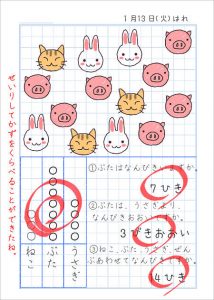 1月13日(火)はれ
せいりしてかずをくらべることができたね。
①ぶたはなんびきいますか。
7ひき
②ぶたは、うさぎより、
なんびきおおいですか。
3びきおおい
③ねこ、ぶた、うさぎ、ぜん
ぶあわせてなんびきですか。
4ひき
うさぎ
ぶた
ねこ